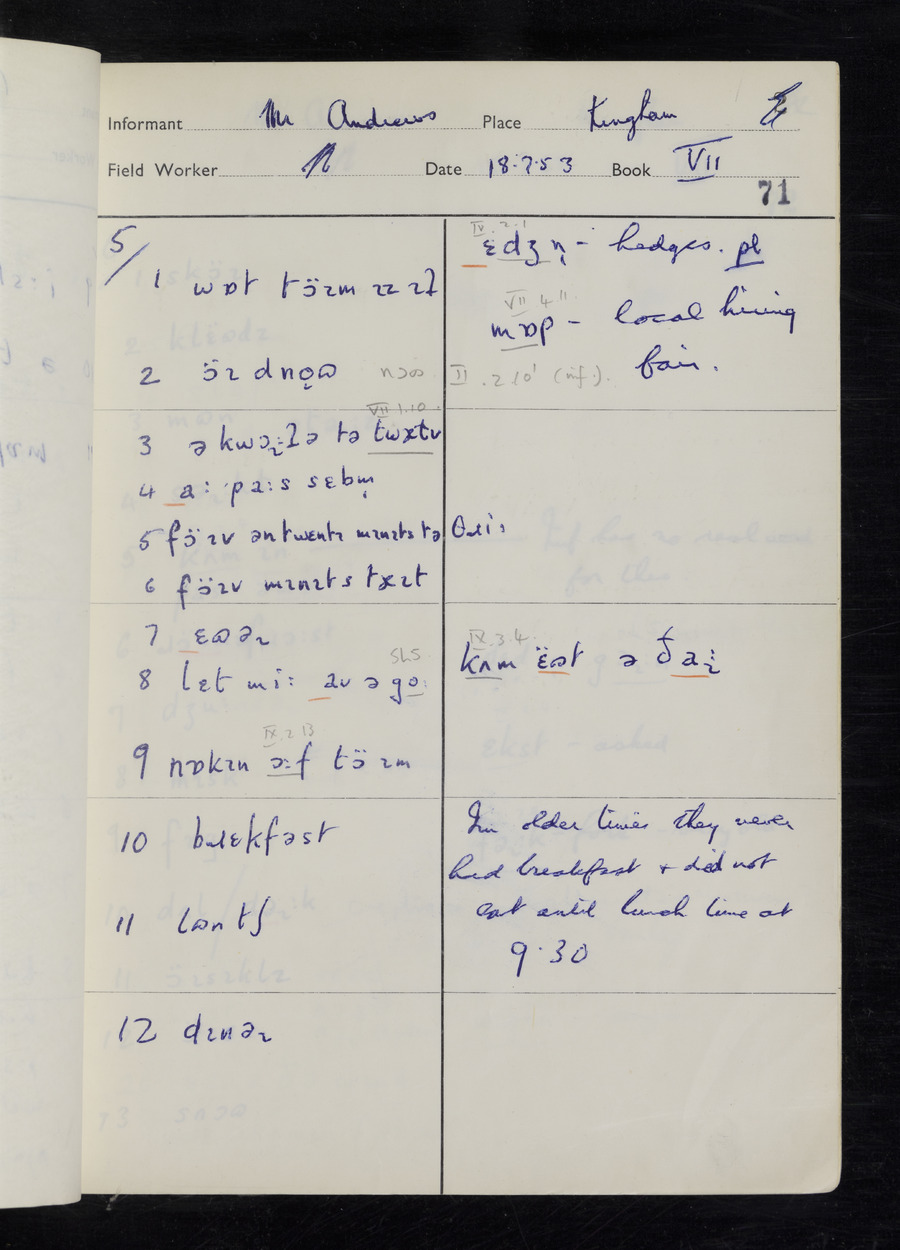 Informant Mr Andrews Place Kingham
Field Worker Date 18.7.53 Book VII
71
5/
1 wɒt tɔ̈ɪm ɪz ɪt
2 ɔ̈ɪ dnọʊ nɔʊ
3 ə kwɔ:ʈə tə twɛtv VII 1.10
4 a: pa:s sɛbm̩
5 fɔ̈ɪv ən twɛntɪ mɪnɪts tə θɹi:
6 fɔ̈ɪv mɪnɪts t ɛɪt
7 ɛʊəɻ
8 lɛt mi: av ə go: 5L5
9 nɒkɪn ɔ:f tɔ̈ɪm IX.2.13
10 bɹɛkfəst
11 lʊntʃ
12 dɪnəɻ
IV.2.1
ɛdʒn̩ - hedges. pl
VII 4 11
mɒp - local hiring
fair.
II.2.10' (inf.).
IX.3.4
kʌm ə ða:
In older times they never
had breakfast + did not
eat until lunch time at
9.30